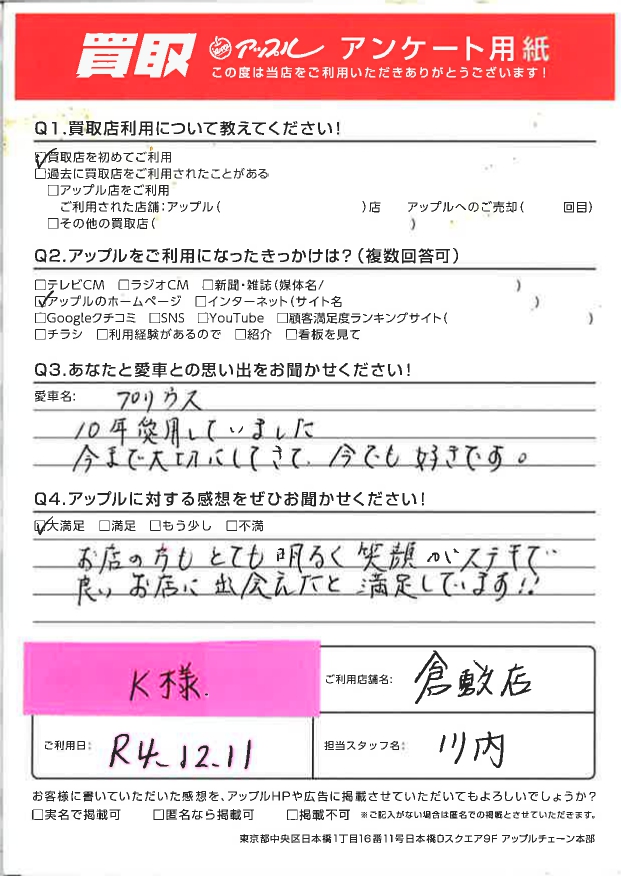 買取 アップル アンケート用紙
この度は当店をご利用いただきありがとうございます!
Q1.買取店利用について教えてください!
☑買取店を初めてご利用
□過去に買取店をご利用されたことがある
□アップル店をご利用
ご利用された店舗:アップル( )店 アップルへのご売却( 回目)
□その他の買取店( )
Q2.アップルをご利用になったきっかけは?(複数回答可)
□テレビCM □ラジオCM □新聞・雑誌(媒体名/ )
☑アップルのホームページ □インターネット(サイト名 )
□Googleクチコミ □SNS □YouTube □顧客満足度ランキングサイト( )
□チラシ □利用経験があるので □紹介 □看板を見て
Q3.あなたと愛車との思い出をお聞かせください!
愛車名: プリウス
10年愛用していました
今まで大切にしてきて、今でも好きです。
Q4.アップルに対する感想をぜひお聞かせください!
☑大満足 □満足 □もう少し □不満
お店の方もとても明るく笑顔がステキで
良いお店に出会えたと満足しています!!
K様. ご利用店舗名: 倉敷店
ご利用日: R4.12.11 担当スタッフ名: 川内
お客様に書いていただいた感想を、アップルHPや広告に掲載させていただいてもよろしいでしょうか?
□実名で掲載可 □匿名なら掲載可 □掲載不可 ※ご記入がない場合は匿名での掲載とさせていただきます。
東京都中央区日本橋1丁目16番11号日本橋Dスクエア9F アップルチェーン本部